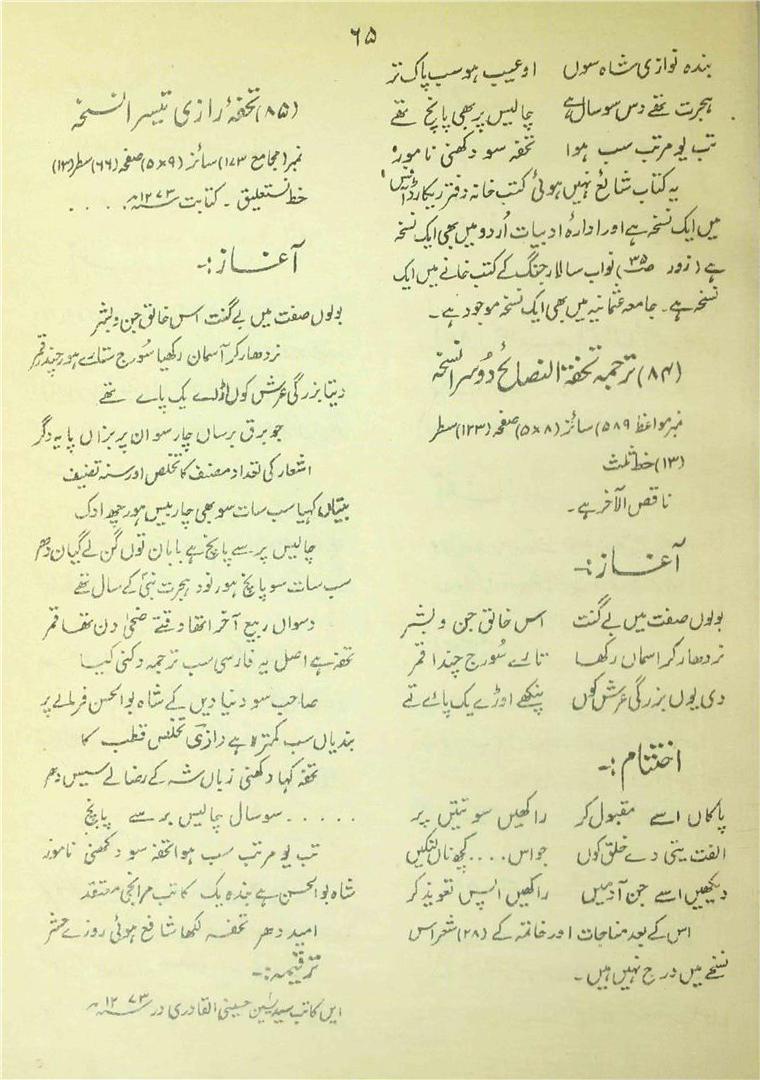 ۶۵
بندہ نوازی شاہ سوں اوعیب ہو سب پاک تر
ہجرت تھے دس سو سال ہے چالیس پر بھی پانچ تھے
تب یو مرتب سب ہوا تحفہ سو دکھنی نامور
یہ کتاب شائع نہیں ہوئی کتب خانہ دفتر ریکارڈ آفس
میں ایک نسخہ ہے اور ادارۂ ادبیات اُردو میں بھی ایک نسخہ
ہے (زور صفحہ ۳۵) نواب سالار جنگ کے کتب خانے میں ایک
نسخہ ہے۔ جامعہ عثمانیہ میں بھی ایک نسخہ موجود ہے۔
(۸۴) ترجمہ تحفۃ النصائح دوسرا نسخہ
نمبر مواعظ ۵۸۹) سائز (۸×۵) صفحہ (۱۲۳) سطر
(۱۳) خط ثلث
ناقص الآخر ہے۔
آغاز:۔
بولوں صفت میں بے گنت اس خالق جن و بشر
نردھار کر اسماں رکھا تارے سُورج چندا قمر
دی یوں بزرگی عرش کوں پنکھے اوڑے یک پائے تے
اختتام:۔
پاکاں اسے مقبول کر راکھیں سو نیتیں پر
الفت یتی دے خلق کوں جو اس .... کچھ ناں لنگیں
دیکھیں اسے جن آدمیں راکھیں اپس تعویذ کر
اس کے بعد مناجات اور خاتمہ کے (۲۸) شعر اس
نسخے میں درج نہیں ہیں۔
(۸۵) تحفۂ رازی تیسرا نسخہ
نمبر (مجامع ۱۷۳) سائز (۹×۵) صفحہ (۶۶) سطر (۱۳)
خط نستعلیق۔ کتابت سنہ ۱۲۷۳ھ . . . .
آغاز:۔
بولوں صفت میں بے گنت اس خالق جن و بشر
نردھار کر آسمان رکھیا سُورج ستارے ہور چندر قمر
دیتا بزرگی عرش کوں لڈلے یک پاے تھے
جو برق برساں چار سو ان پر بزاں پایہ دگر
اشعار کی تعداد مصنف کا تخلص اور سنہ تصنیف
بیتاں کہیا سب سات سو بھی چار بیس ہور چھ ادک
چالیس پر سے پانچ ہے بابان توں گن لے گیان دھر
سب سات سو پانچ ہور نود ہجرت نبیؐ کے سال تھے
دسواں ربیع آخر اتھا وقتے ضحیٰ دن تھا قمر
تحفہ ہے اصل یہ فارسی سب ترجمہ دکنی کیا
صاحب سو دنیا دیں کے شاہ بوالحسن فرمائے پر
بندیاں سب کمتر ہے رازی تخلص قطب کا
تحفہ کہا دکھنی زباں شہ کے رضا لے سیس دھر
. . . . . سو سال چالیس بر سے پانچ
تب یو مرتب سب ہوا تحفہ سو دکھنی نامور
شاہ بوالحسن ہے بندہ یک کاتب معتقد
امید دھر تحفہ لکھا شافع ہوئی روزے حشر
ترقیمہ:۔
ایں کاتب سید یٰسین حسینی القادری در سنہ ۱۲۷۳ھ